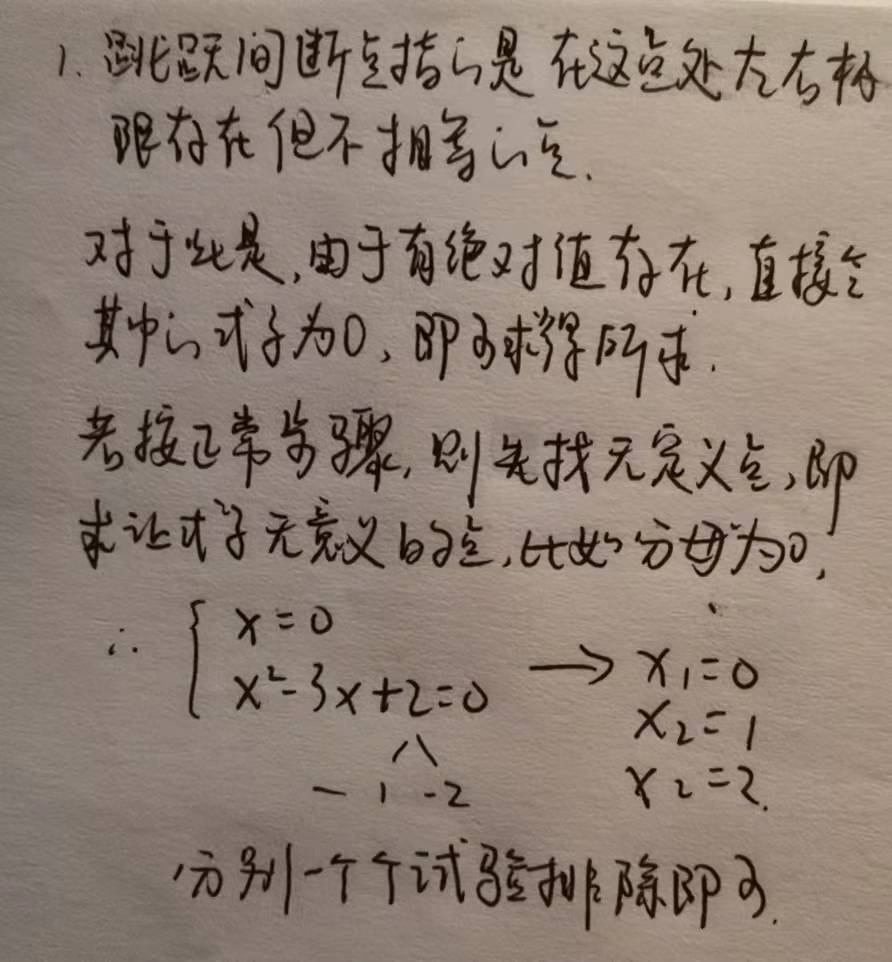 1. 跳跃间断点指的是在这点处左右极
限存在但不相等的点.
对于此是,由于有绝对值存在,直接令
其中的式子为0,即可求得所求.
若按正常步骤,则先找无定义点,即
求让式子无意义的点,比如分母为0,
∴ { x=0
x²-3x+2=0 → x₁=0
x₂=1
-1 -2 x₂=2.
分别一个个试验排除即可.